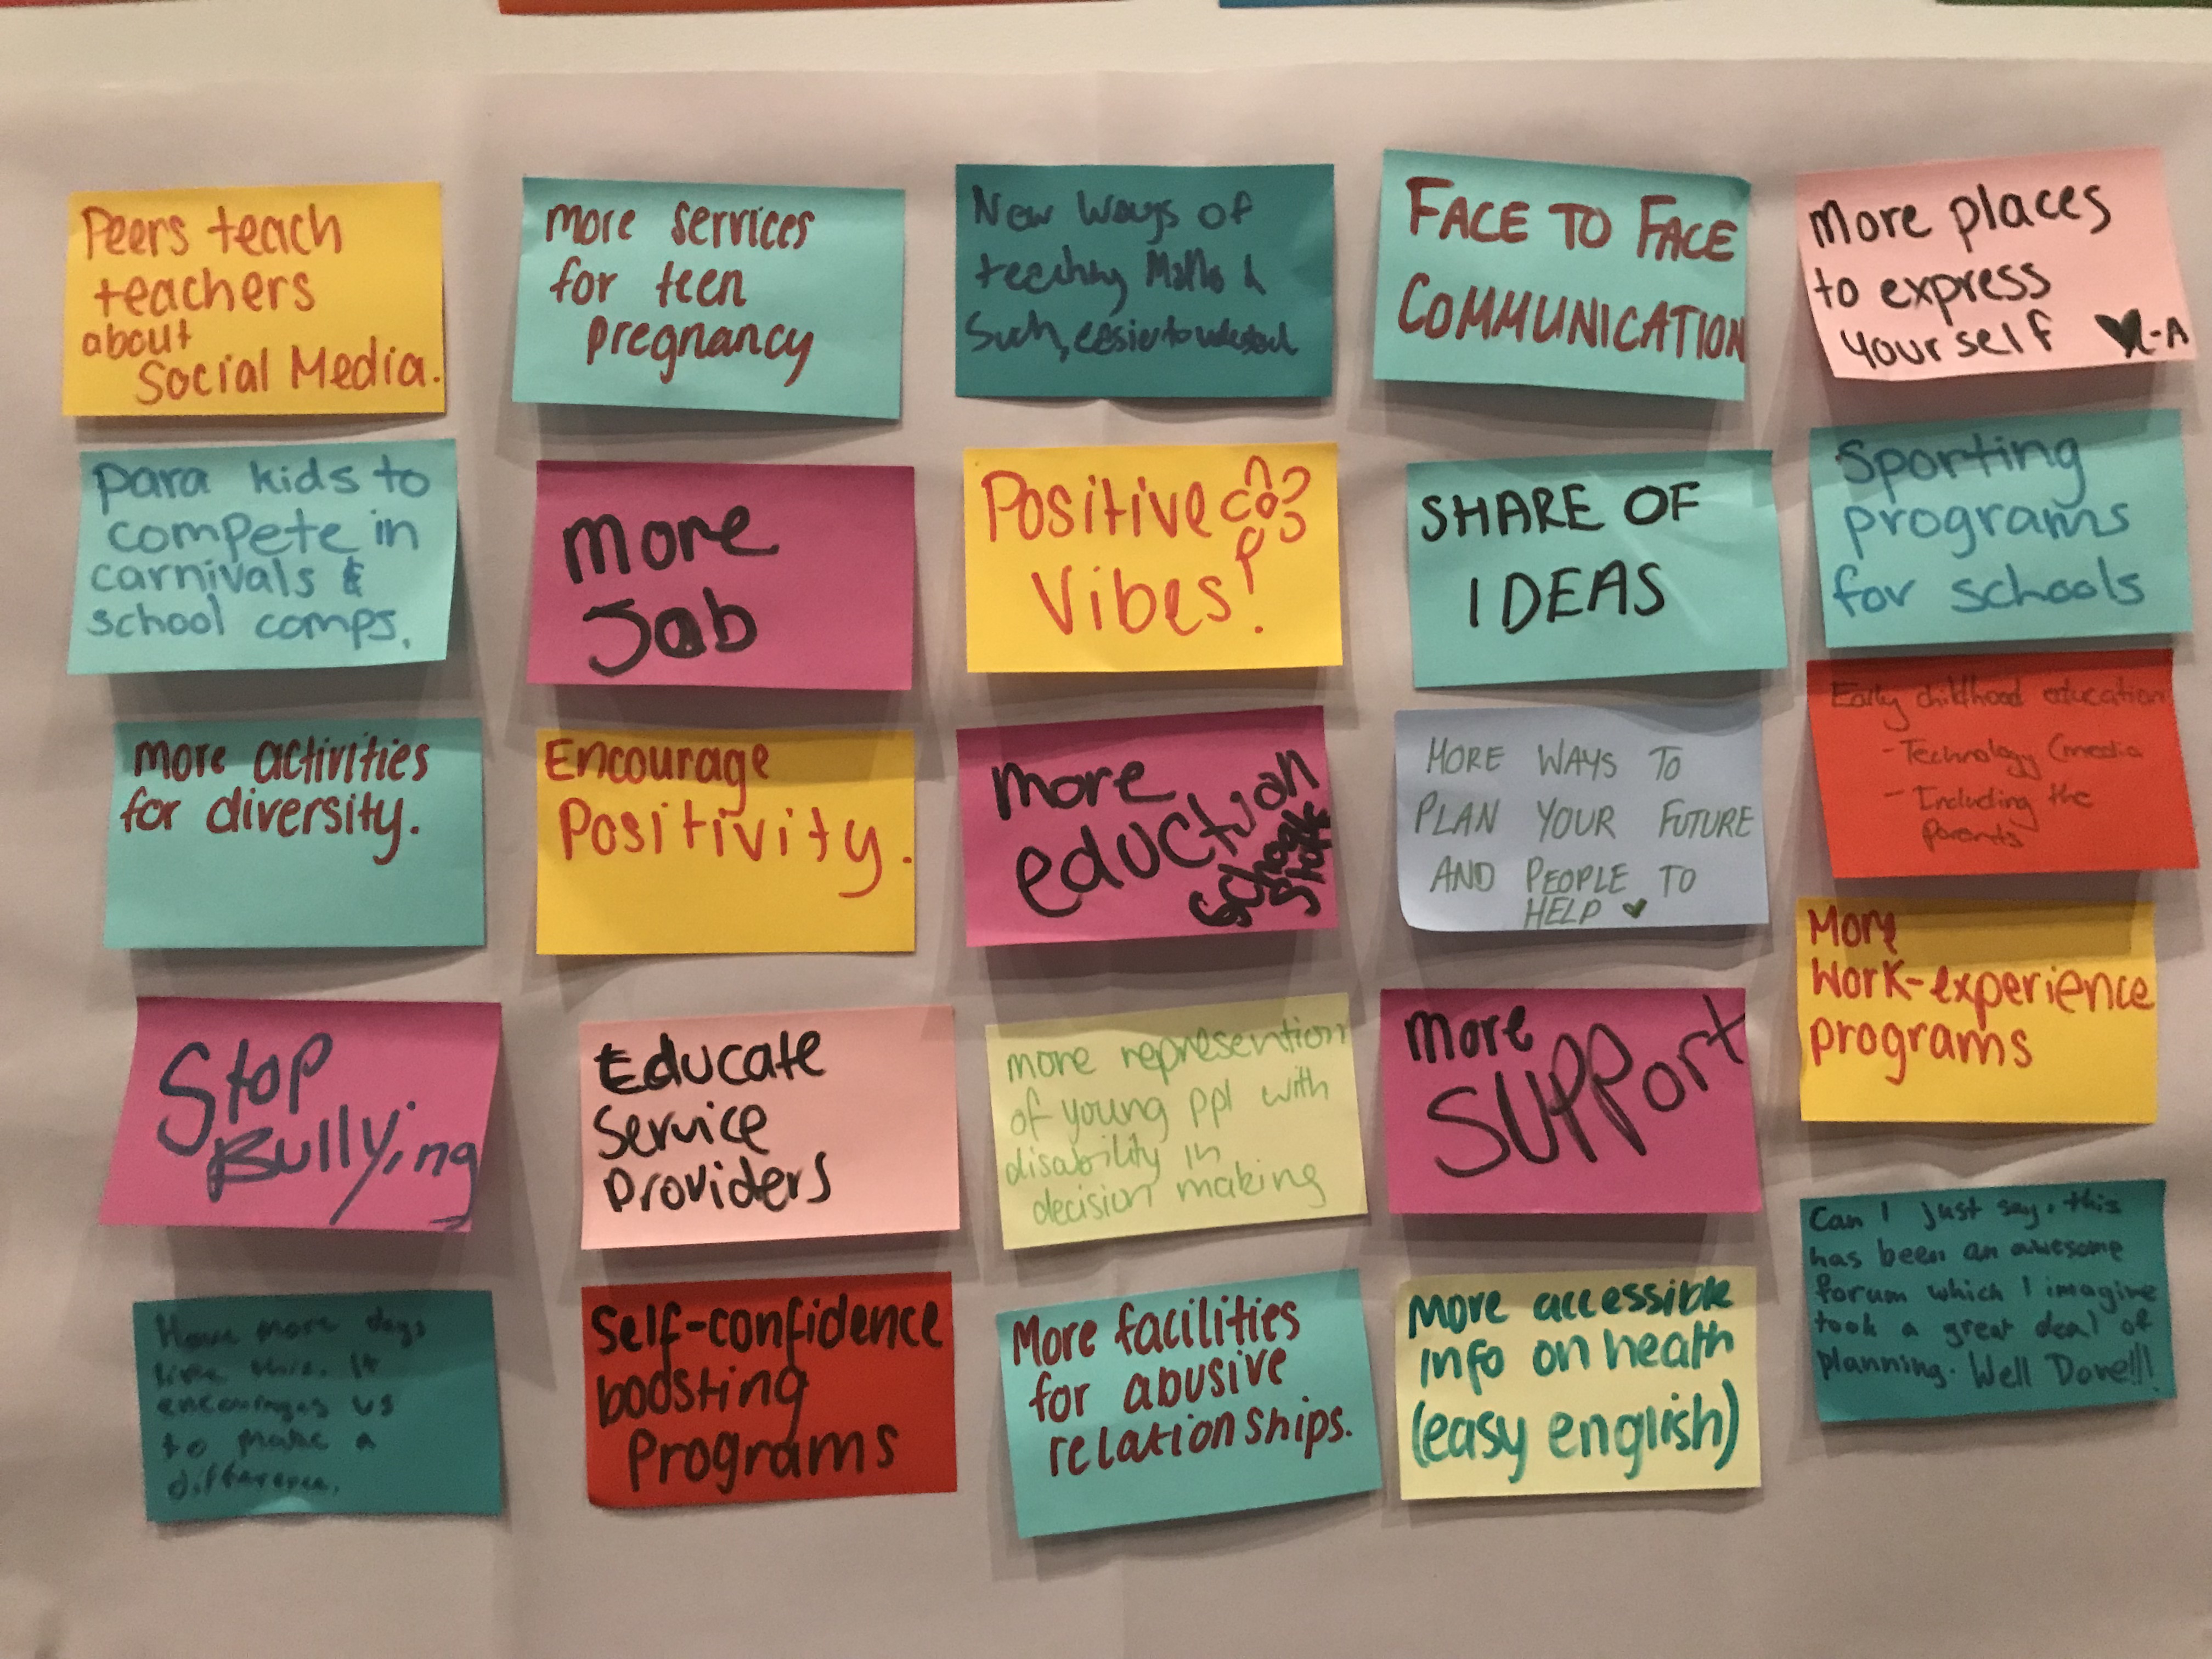 Peers teach
teachers
about
Social Media.
more services
for teen
pregnancy
New Ways of
teaching Maths &
Such, easier to understand
FACE TO FACE
COMMUNICATION
More places
to express
yourself ♥-A
para kids to
compete in
carnivals &
school comps.
more
Job
Positive
Vibes!
SHARE OF
IDEAS
Sporting
programs
for schools
more activities
for diversity.
Encourage
Positivity.
more
eduction
School
MORE WAYS TO
PLAN YOUR FUTURE
AND PEOPLE TO
HELP ♥
Early childhood education
- Technology (media
- Including the
parents
Stop
Bullying
Educate
Service
Providers
more represention
of young ppl with
disability in
decision making
more
SUPPort
More
Work-experience
programs
Have more days
like this. It
encourages us
to make a
difference.
Self-confidence
boosting
Programs
More facilities
for abusive
relationships.
More accessible
info on health
(easy english)
Can I just say, this
has been an awesome
forum which I imagine
took a great deal of
planning. Well Done!!!